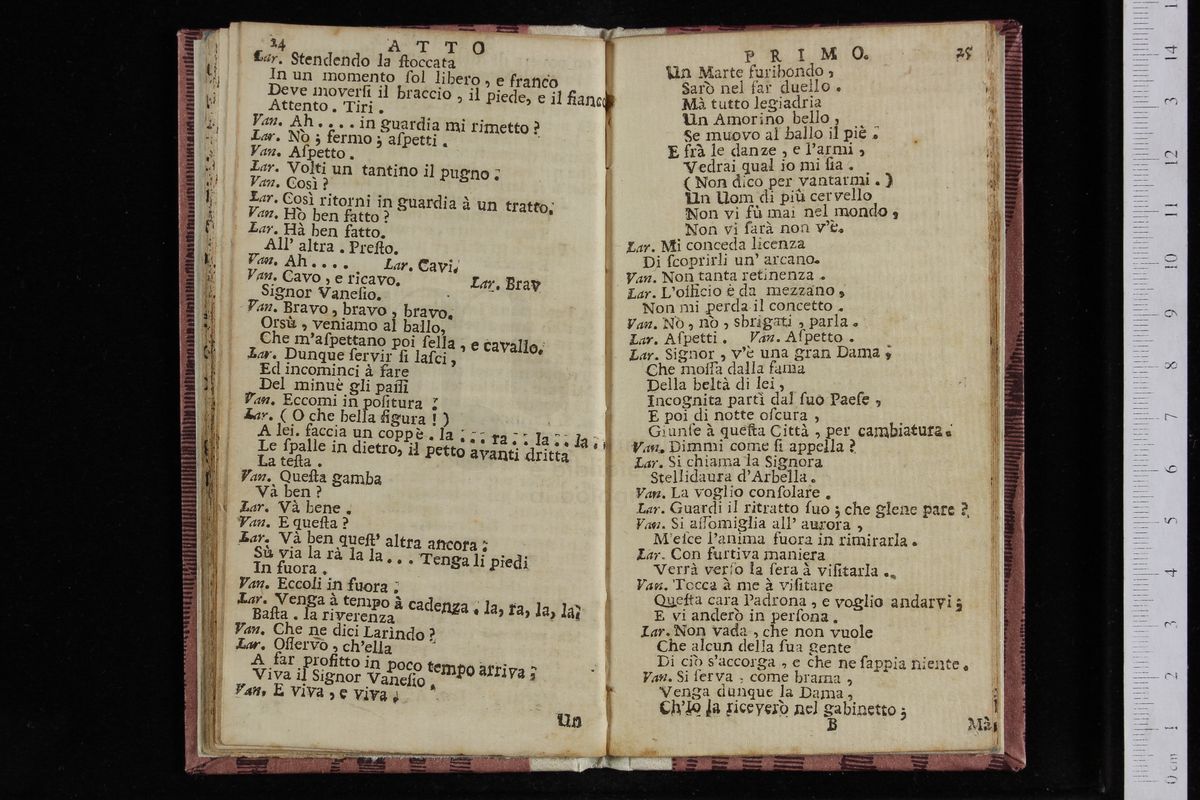 24 ATTO
Lar. Stendendo la ſtoccata
In un momento ſol libero, e franco
Deve moverſi il braccio, il piede, e il fianco
Attento. Tiri.
Van. Ah.... in guardia mi rimetto?
Lar. Nò; fermo; aſpetti.
Van. Aſpetto.
Lar. Volti un tantino il pugno.
Van. Così?
Lar. Così ritorni in guardia à un tratto.
Van. Hò ben fatto?
Lar. Hà ben fatto.
All' altra. Preſto.
Van. Ah.... Lar. Cavi.
Van. Cavo, e ricavo. Lar. Brav
Signor Vaneſio.
Van. Bravo, bravo, bravo.
Orsù, veniamo al ballo,
Che m'aſpettano poi ſella, e cavallo.
Lar. Dunque ſervir ſi laſci,
Ed incominci à fare
Del minuè gli paſſi
Van. Eccomi in poſitura.
Lar. (O che bella figura!)
A lei. faccia un coppè. la... ra.. la.. la..
Le ſpalle in dietro, il petto avanti dritta
La teſta.
Van. Queſta gamba
Và ben?
Lar. Và bene.
Van. E queſta?
Lar. Và ben queſt' altra ancora:
Sù via la rà la la... Tenga li piedi
In fuora.
Van. Eccoli in fuora.
Lar. Venga à tempo à cadenza. la, ra, la, la?
Baſta. la riverenza
Van. Che ne dici Larindo?
Lar. Oſſervo, ch'ella
A far profitto in poco tempo arriva;
Viva il Signor Vaneſio.
Van. E viva, e viva.
Un
PRIMO. 25
Un Marte furibondo,
Sarò nel far duello.
Mà tutto legiadria
Un Amorino bello,
Se muovo al ballo il piè.
E frà le danze, e l'armi,
Vedrai qual io mi ſia.
(Non dico per vantarmi.)
Un Uom di più cervello
Non vi fù mai nel mondo,
Non vi ſarà non v'è.
Lar. Mi conceda licenza
Di ſcoprirli un' arcano.
Van. Non tanta retinenza.
Lar. L'officio è da mezzano,
Non mi perda il concetto.
Van. Nò, nò, sbrigati, parla.
Lar. Aſpetti. Van. Aſpetto.
Lar. Signor, v'è una gran Dama;
Che moſſa dalla fama
Della beltà di lei,
Incognita partì dal ſuo Paeſe,
E poi di notte oſcura,
Giunſe à queſta Città, per cambiatura.
Van. Dimmi come ſi appella?
Lar. Si chiama la Signora
Stellidaura d'Arbella.
Van. La voglio conſolare.
Lar. Guardi il ritratto ſuo; che glene pare?
Van. Si aſſomiglia all' aurora,
M'eſce l'anima fuora in rimirarla.
Lar. Con furtiva maniera
Verrà verſo la ſera à viſitarla.
Van. Tocca à me à viſitare
Queſta cara Padrona, e voglio andarvi;
E vi anderò in perſona.
Lar. Non vada, che non vuole
Che alcun della ſua gente
Di ciò s'accorga, e che ne ſappia niente.
Van. Si ſerva, come brama,
Venga dunque la Dama,
Ch'Io la riceverò nel gabinetto;
B Mà
0 cm 1 2 3 4 5 6 7 8 9 10 11 12 13 14